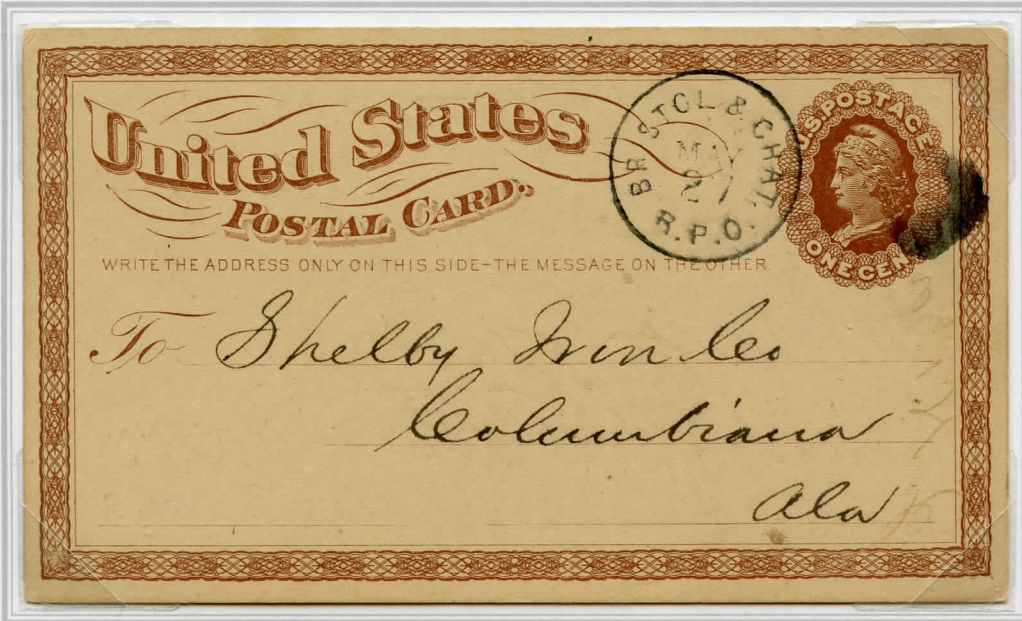 United States
POSTAL CARD.
BRISTOL & CHAT.
MAY
R.P.O.
U.S. POSTAGE
ONE CENT
WRITE THE ADDRESS ONLY ON THIS SIDE–THE MESSAGE ON THE OTHER
To Shelby Iron Co
Columbiana
Ala